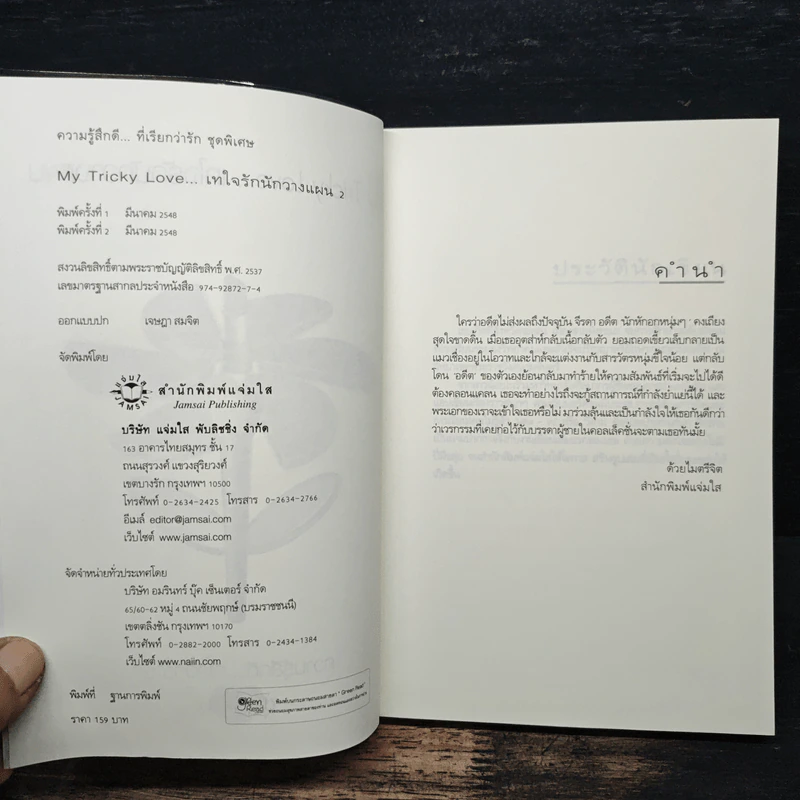 ความรู้สึกดี... ที่เรียกว่ารัก ชุดพิเศษ
My Tricky Love... เทใจรักนักวางแผน 2
พิมพ์ครั้งที่ 1 มีนาคม 2548
พิมพ์ครั้งที่ 2 มีนาคม 2548
สงวนลิขสิทธิ์ตามพระราชบัญญัติลิขสิทธิ์ พ.ศ. 2537
เลขมาตรฐานสากลประจำหนังสือ 974-92872-7-4
ออกแบบปก เจษฎา สมจิต
จัดพิมพ์โดย
แจ่มใส
JAMSAI
สำนักพิมพ์แจ่มใส
Jamsai Publishing
บริษัท แจ่มใส พับลิชชิ่ง จำกัด
163 อาคารไทยสมุทร ชั้น 17
ถนนสุรวงศ์ แขวงสุริยวงศ์
เขตบางรัก กรุงเทพฯ 10500
โทรศัพท์ 0-2634-2425 โทรสาร 0-2634-2766
อีเมล์ editor@jamsai.com
เว็บไซต์ www.jamsai.com
จัดจำหน่ายทั่วประเทศโดย
บริษัท อมรินทร์ บุ๊ค เซ็นเตอร์ จำกัด
65/60-62 หมู่ 4 ถนนชัยพฤกษ์ (บรมราชชนนี)
เขตตลิ่งชัน กรุงเทพฯ 10170
โทรศัพท์ 0-2882-2000 โทรสาร 0-2434-1384
เว็บไซต์ www.naiin.com
พิมพ์ที่ ฐานการพิมพ์
ราคา 159 บาท
Green Read
พิมพ์บนกระดาษถนอมสายตา "Green Read"
คำนำ
ใครว่าอดีตไม่ส่งผลถึงปัจจุบัน จีรดา อดีต นักหักอกหนุ่มๆ คงเถียง
สุดใจขาดดิ้น เมื่อเธออุตส่าห์กลับเนื้อกลับตัว ยอมถอดเขี้ยวเล็บกลายเป็น
แมวเชื่องอยู่ในโอวาทและใกล้จะแต่งงานกับสารวัตรหนุ่มขี้ใจน้อย แต่กลับ
โดน 'อดีต' ของตัวเองย้อนกลับมาทำร้ายให้ความสัมพันธ์ที่เริ่มจะไปได้ดี
ต้องคลอนแคลน เธอจะทำอย่างไรถึงจะกู้สถานการณ์ที่กำลังย่ำแย่นี้ได้ และ
พระเอกของเราจะเข้าใจเธอหรือไม่ มาร่วมลุ้นและเป็นกำลังใจให้เธอกันดีกว่า
ว่าเวรกรรมที่เคยก่อไว้กับบรรดาผู้ชายในคอลเล็คชั่นจะตามเธอทันมั้ย
ด้วยไมตรีจิต
สำนักพิมพ์แจ่มใส